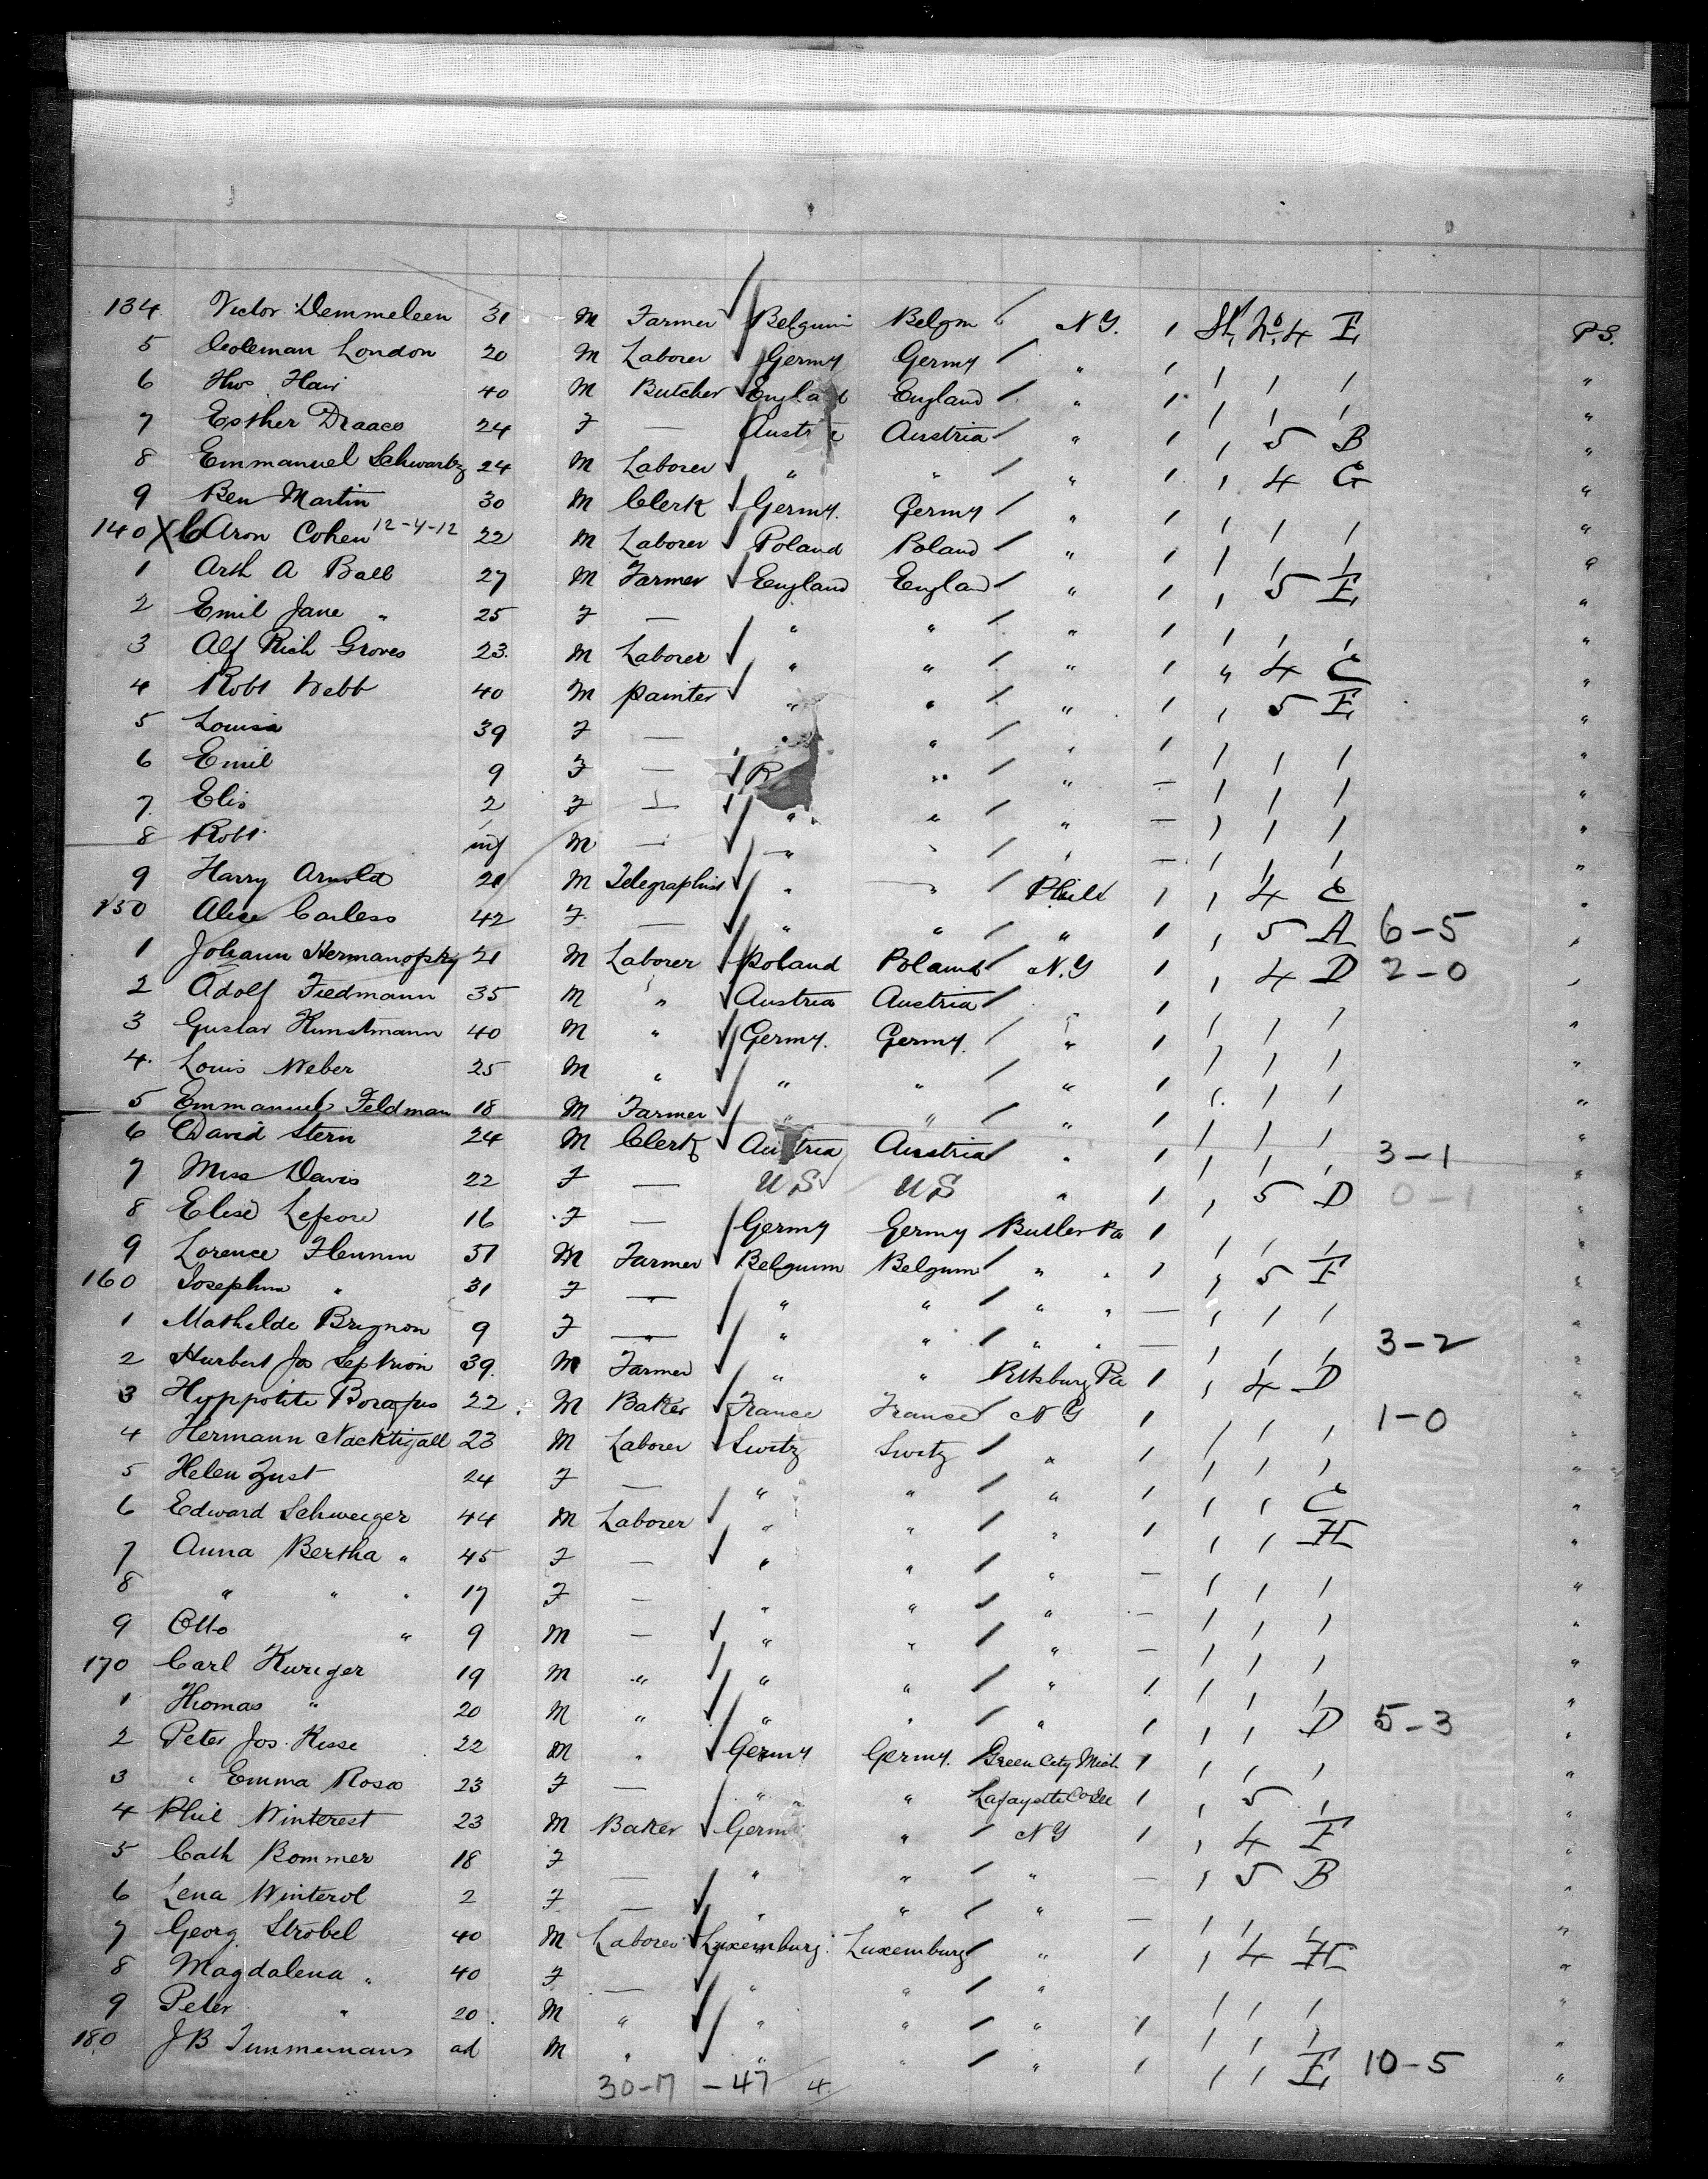 134 Victor Demmeleen 31 M Farmer Belguim Belgm N Y. 1 4 E P S.
5 Coleman London 20 M Laborer Germy Germy " 1 1 1 1 "
6 Thos Hair 40 M Butcher England England " 1 1 1 1 "
7 Esther Draaco 24 F — Austria Austria " 1 1 5 B "
8 Emmanuel Schwartz 24 M Laborer " " " 1 1 4 G "
9 Ben Martin 30 M Clerk Germy. Germy " 1 1 1 1 "
140 X C Aron Cohen 12-4-12 22 M Laborer Poland Poland " 1 1 1 1 "
1 Arth A Ball 27 M Farmer England England " 1 1 5 E "
2 Emil Jane " 25 F — " " " 1 1 1 1 "
3 Alf Rich Groves 23. M Laborer " " " 1 " 4 C "
4 Robt Webb 40 M painter " " " 1 1 5 E "
5 Louisa 39 F — " " " 1 1 1 1 "
6 Emil 9 F — R " " — 1 1 1 "
7. Elis 2 F — " " " — 1 1 1 "
8 Robt. inf M — " " " — 1 1 1 "
9 Harry Arnold 21 M Telegraphist " " Phild 1 1 4 C "
150 Alice Carless 42 F — " " " 1 1 5 A 6-5 "
1 Johann Hermanofsky 21 M Laborer Poland Poland N.Y 1 1 4 D 2-0 "
2 Adolf Fiedmann 35 M " Austria Austria " 1 1 1 1 "
3 Gustav Hunstmann 40 M " Germy. Germy. " 1 1 1 1 "
4. Louis Weber 25 M " " " " 1 1 1 1 "
5 Emmanuel Feldman 18 M Farmer " " " 1 1 1 1 "
6 David Stern 24 M Clerk Austria Austria " 1 1 1 1 3-1 "
7 Miss Davis 22 F — U S U S " 1 1 5 D 0-1 "
8 Elise Lefevre 16 F — Germy Germy Butler Pa 1 1 1 1 "
9 Lorence Hennin 31 M Farmer Belguim Belguim " " 1 1 5 F "
160 Josephine " 31 F — " " " " — 1 1 1 "
1 Mathilde Brignon 9 F — " " " " — 1 1 1 3-2 "
2 Hurbert Jos Septrion 39. M Farmer " " Pittsburg Pa 1 1 4 D "
3 Hyppolite 22. M Baker France France N Y 1 1 1 1 1-0 "
4 Hermann Nacktigall 23 M Laborer Switz Switz " 1 1 1 1 "
5 Helen Zust 24 F — " " " 1 1 1 C "
6 Edward Schweiger 44 M Laborer " " " 1 1 1 H "
7 Anna Bertha " 45 F — " " " — 1 1 1 "
8 " " " 17 F — " " " — 1 1 1 "
9 Otto " 9 M — " " " — 1 1 1 "
170 Carl Kuriger 19 M " " " " 1 1 1 1 "
1 Thomas " 20 M " " " " 1 1 1 D 5-3 "
2 Peter Jos. Kesse 22 M " Germy Germy. Green City Mich 1 1 1 1 "
3 " Emma Rosa 23 F — " " Lafayette Co 1 1 5 1 "
4 Phil Winterest 23 M Baker Germ " N Y 1 1 4 F "
5 Cath Bommer 18 F — " " " — 1 5 B "
6 Lena Winterol 2 F — " " " — 1 1 1 "
7 Georg Strobel 40 M Laborer Luxemburg. Luxemburg " 1 1 4 H "
8 Magdalena " 40 F — " " " 1 1 1 "
9 Peter " 20. M " " " " 1 1 1 1 "
180 J B Timmermans ad M " " " " 1 1 1 E 10-5 "
30-17 - 47 4